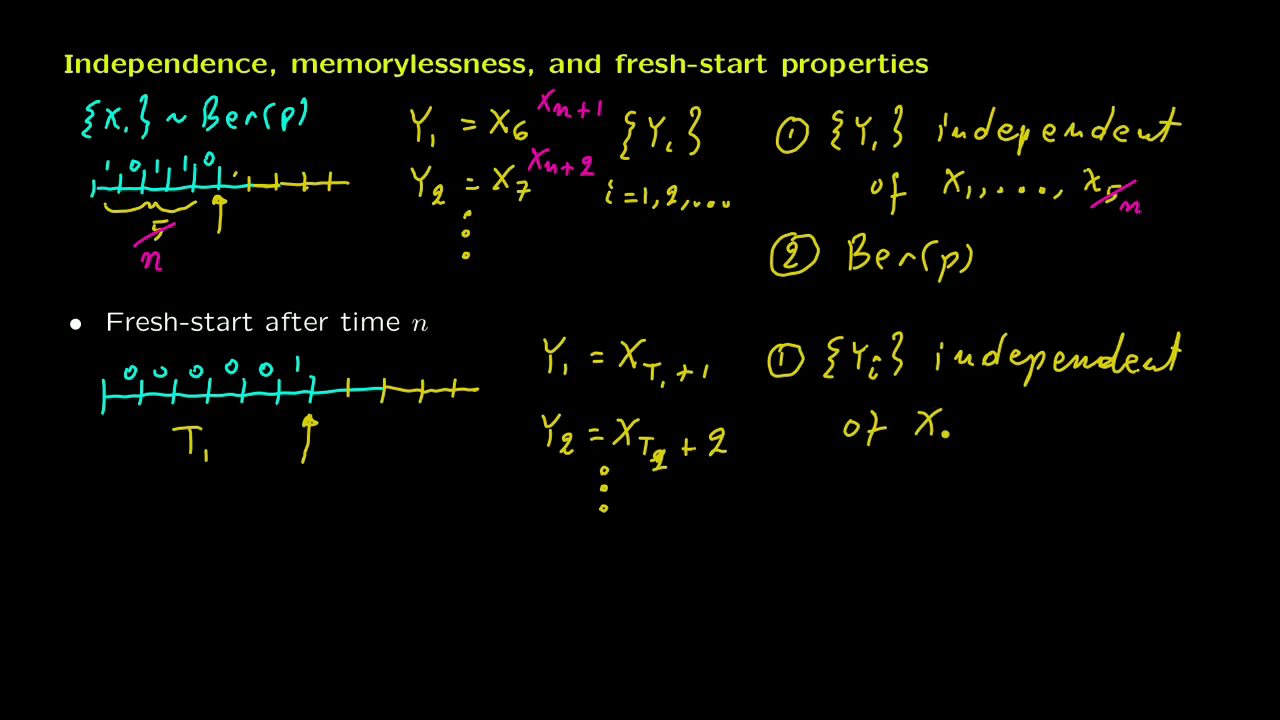 Independence, memorylessness, and fresh-start properties
{Xᵢ} ~ Ber(p)
1 0 1 1 0
5
n
Y₁ = X₆ Xₙ₊₁
Y₂ = X₇ Xₙ₊₂
⋮
{Yᵢ}
i = 1, 2, ...
① {Yᵢ} independent
of X₁, ..., X₅ n
② Ber(p)
• Fresh-start after time n
0 0 0 0 0 1
T₁
Y₁ = X_{T₁+1}
Y₂ = X_{T₂+2}
⋮
① {Yᵢ} independent
of X.